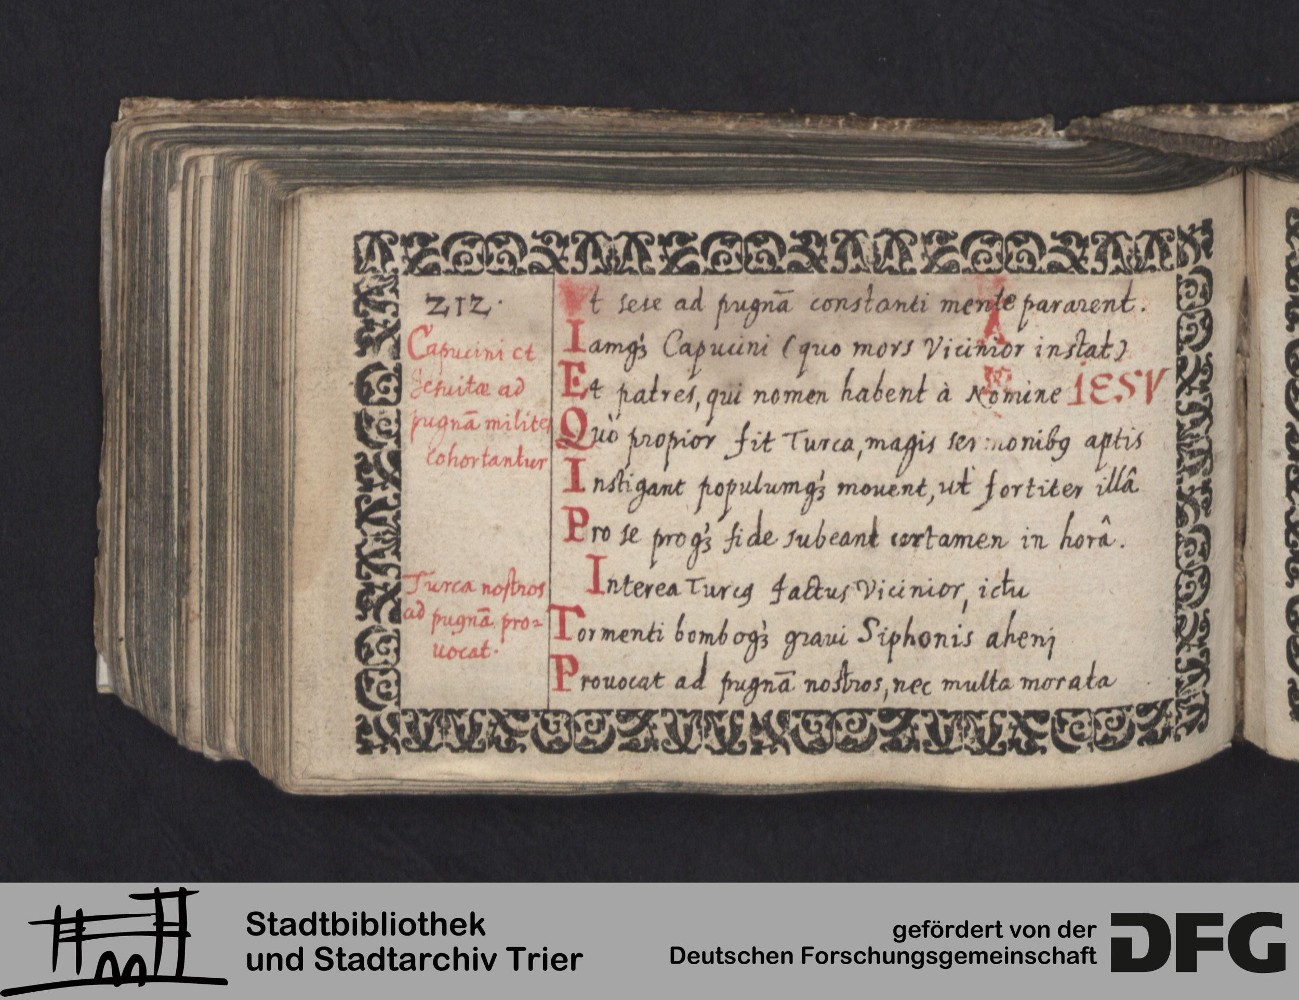 212.
Capucini et
Jesuitæ ad
pugnā milites
cohortantur
Turca nostros
ad pugnā pro-
uocat.
Vt sese ad pugnā constanti mente pararent.
Iamqꝫ Capucini (quo mors Vicinior instat)
Et patres, qui nomen habent à Nomine IESV
Quò propior fit Turca, magis sermonibꝰ aptis
Instigant populumqꝫ mouent, ut fortiter illâ
Pro se proqꝫ fide subeant certamen in horâ.
Interea Turcꝰ factus Vicinior, ictu
Tormenti bomboqꝫ graui Siphonis ahenj
Prouocat ad pugnā nostros, nec multa morata
Stadtbibliothek
und Stadtarchiv Trier
gefördert von der
Deutschen Forschungsgemeinschaft
DFG